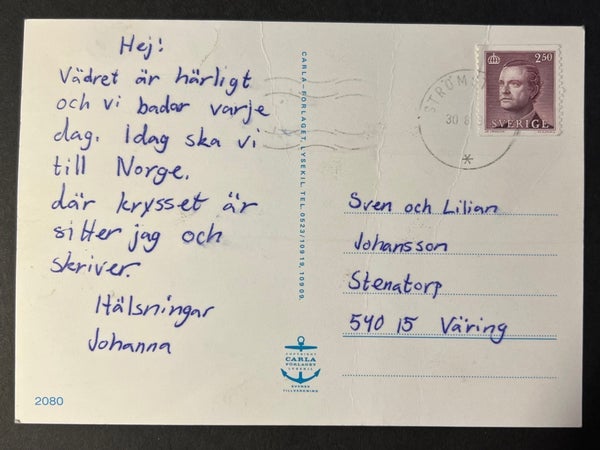 Hej!
Vädret är härligt
och vi badar varje
dag. Idag ska vi
till Norge.
där krysset är
sitter jag och
skriver.
Hälsningar
Johanna
2080
CARLA-FÖRLAGET, LYSEKIL TEL. 0523/109 19, 109 09.
COPYRIGHT
CARLA
FÖRLAGET
LYSEKIL
SVENSK
TILLVERKNING
2.50
SVERIGE
30 8
Sven och Lilian
Johansson
Stenatorp
540 15 Väring